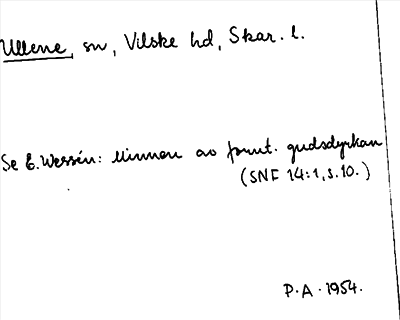 Ullene, sn, Vilske hd, Skar. l.
Se E. Wessén: Minnen av fornt. gudsdyrkan
(SNF 14:1, s. 10.)
P. A. 1954.